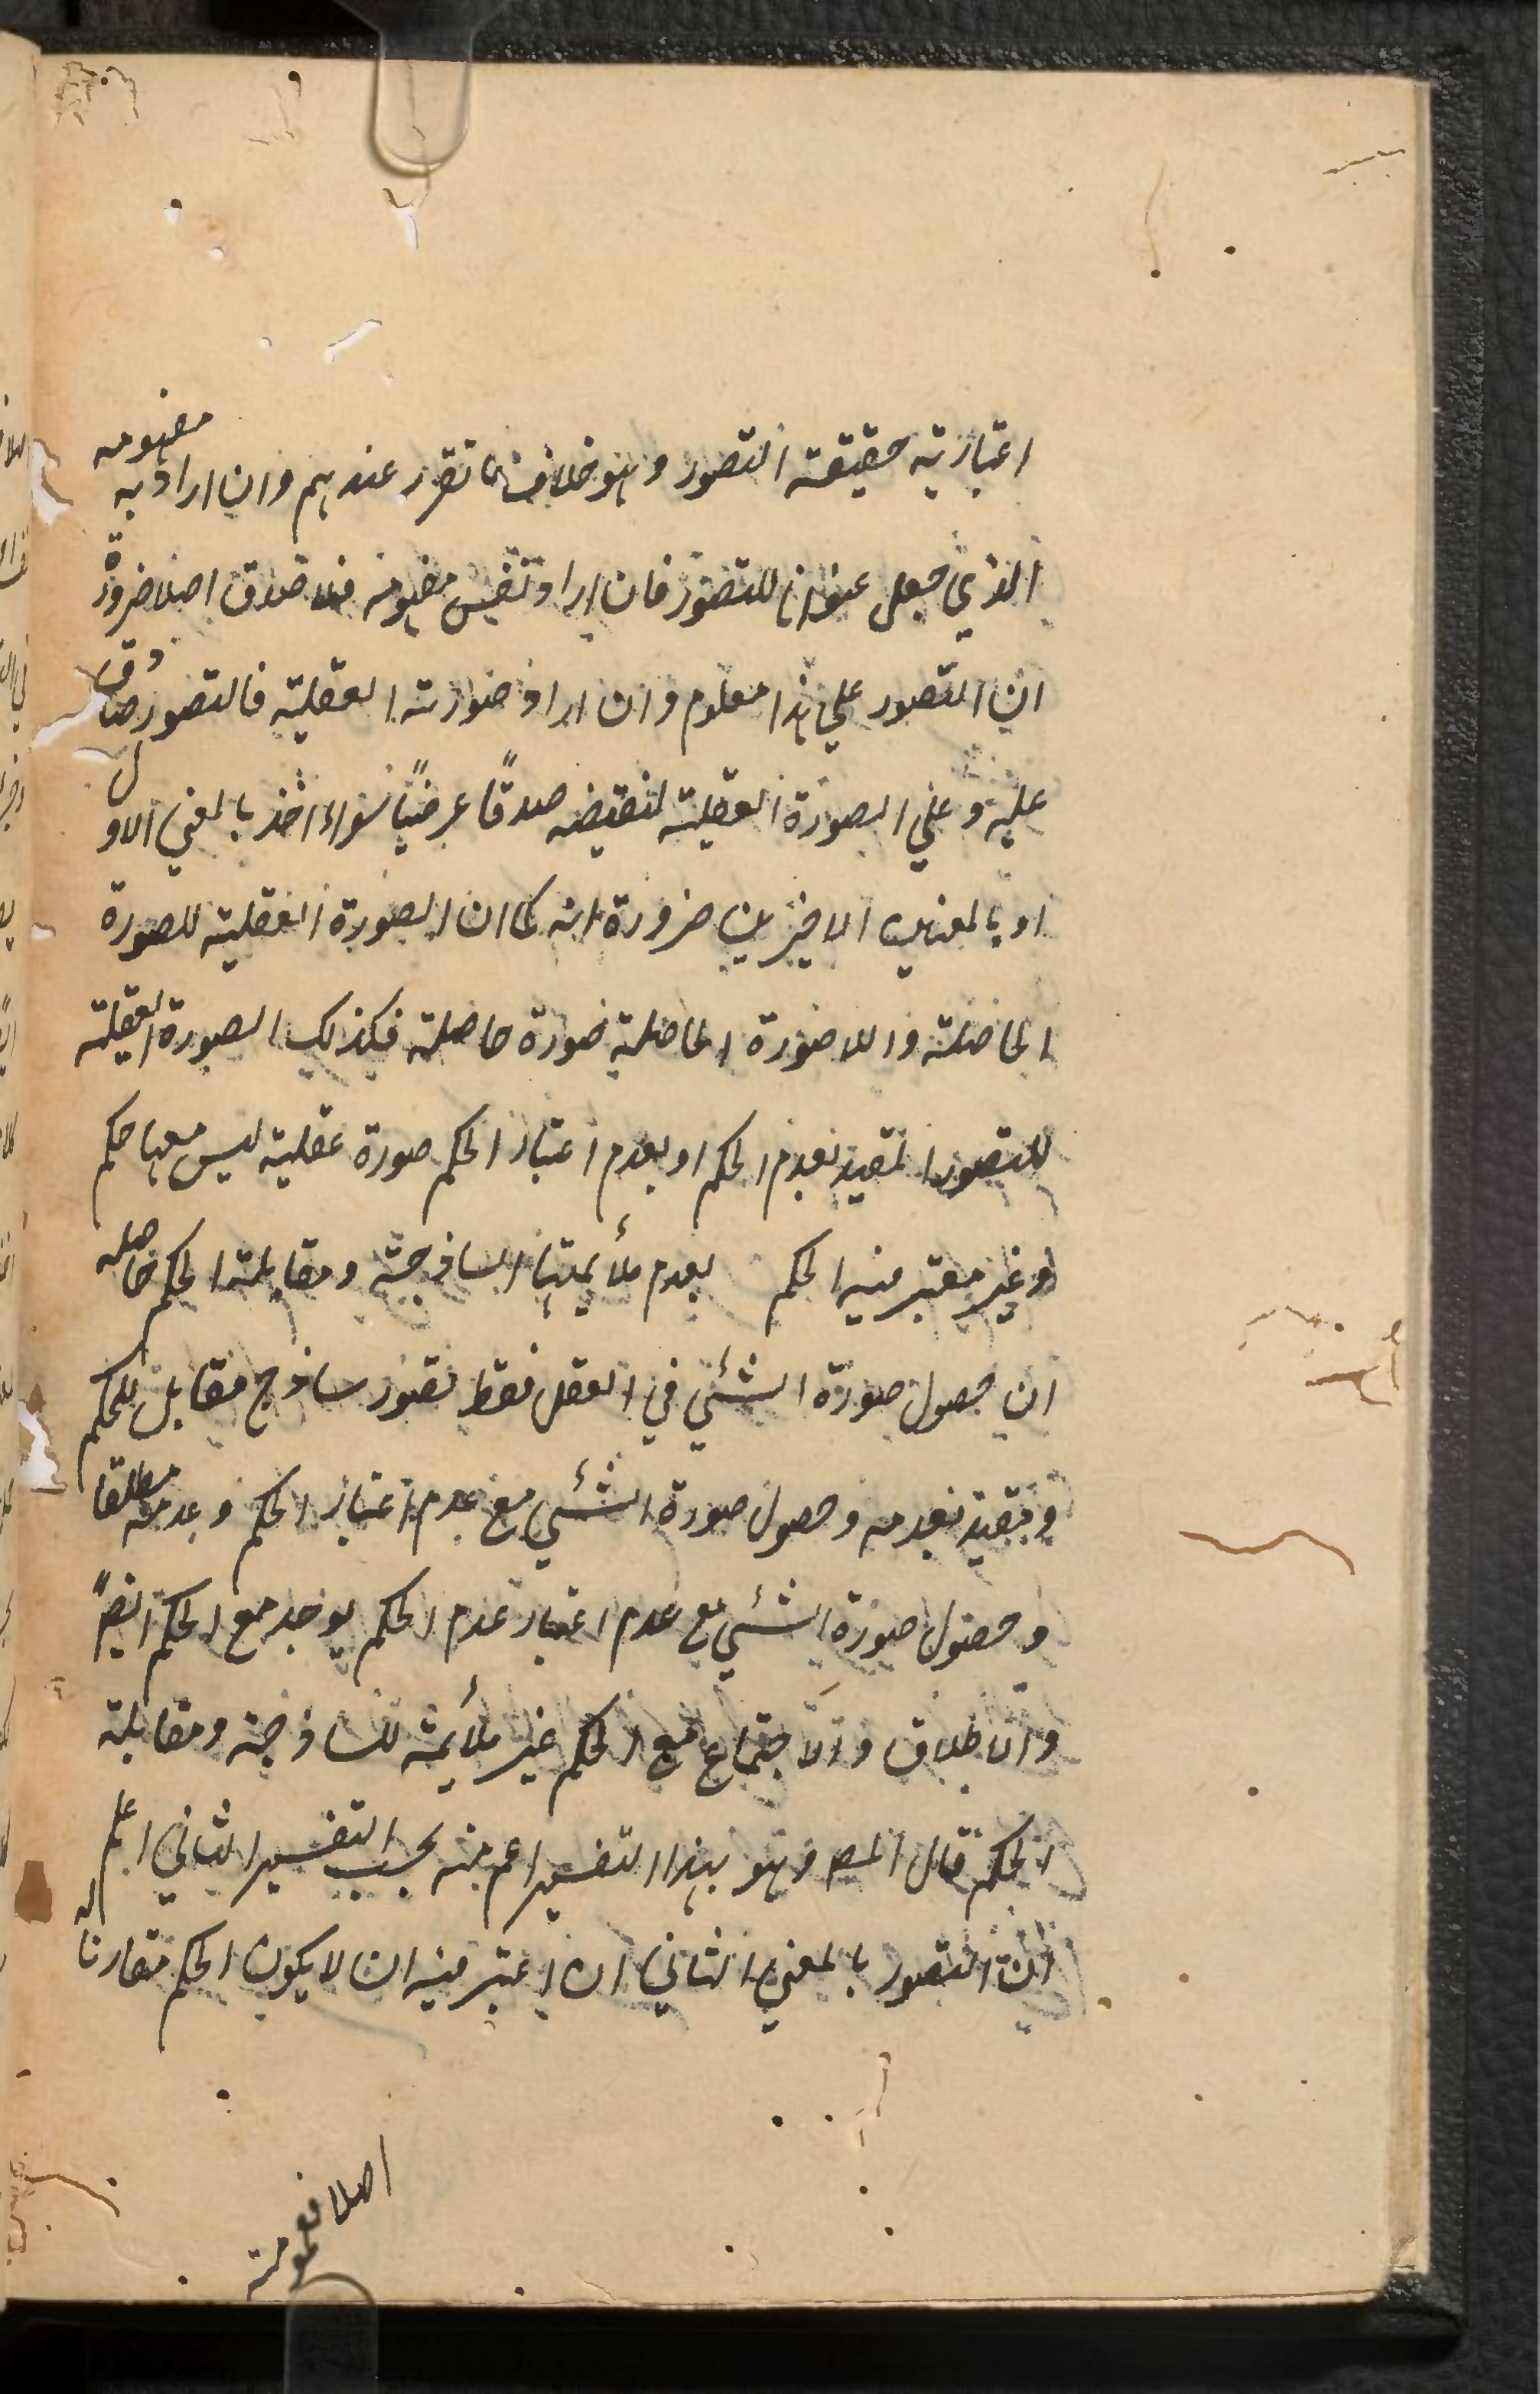 اعتبارية حقيقة التصور وهو خلاف ما تقرر عندهم وان اراد به مفهومه
الذي جعل عنوانا للتصور فان اراد نفس مفهومه فلا صدق اصلا ضرورة
ان التصور علي هذا معلوم وان اراد صورته العقلية فالتصور صادق
عليه و علي الصورة العقلية لنقيضه صدقًا عرضيًا سواء اخذ بالمعني الاول
او بالمعنيين الاخيرين ضرورة انه كما ان الصورة العقلية للصورة
الحاصلة واللاصورة الحاصلة صورة حاصلة فكذلك الصورة العقلية
للتصور المقيد بعدم الحكم او بعدم اعتبار الحكم صورة عقلية ليس معها حكم
او غير معتبر فيه الحكم لعدم ملأيمتها الساذجة ومقابلة الحكم حاصله
ان حصول صورة الشئي في العقل فقط تصور ساذج مقابل للحكم
ومقيد بعدمه وحصول صورة الشئي مع عدم اعتبار الحكم وعدمه مطلقا
وحصول صورة الشئي مع عدم اعتبار عدم الحكم يوجد مع الحكم ايضًا
والاطلاق والاجتماع مع الحكم غير ملأيمة للساذجة ومقابلة
الحكم قال المص وهو بهذا التفسير اعم منه بحسب التفسير الثاني اعلم
ان التصور بالمعني الثاني ان اعتبر فيه ان لا يكون الحكم مقارنا له
اصلا فعمومه